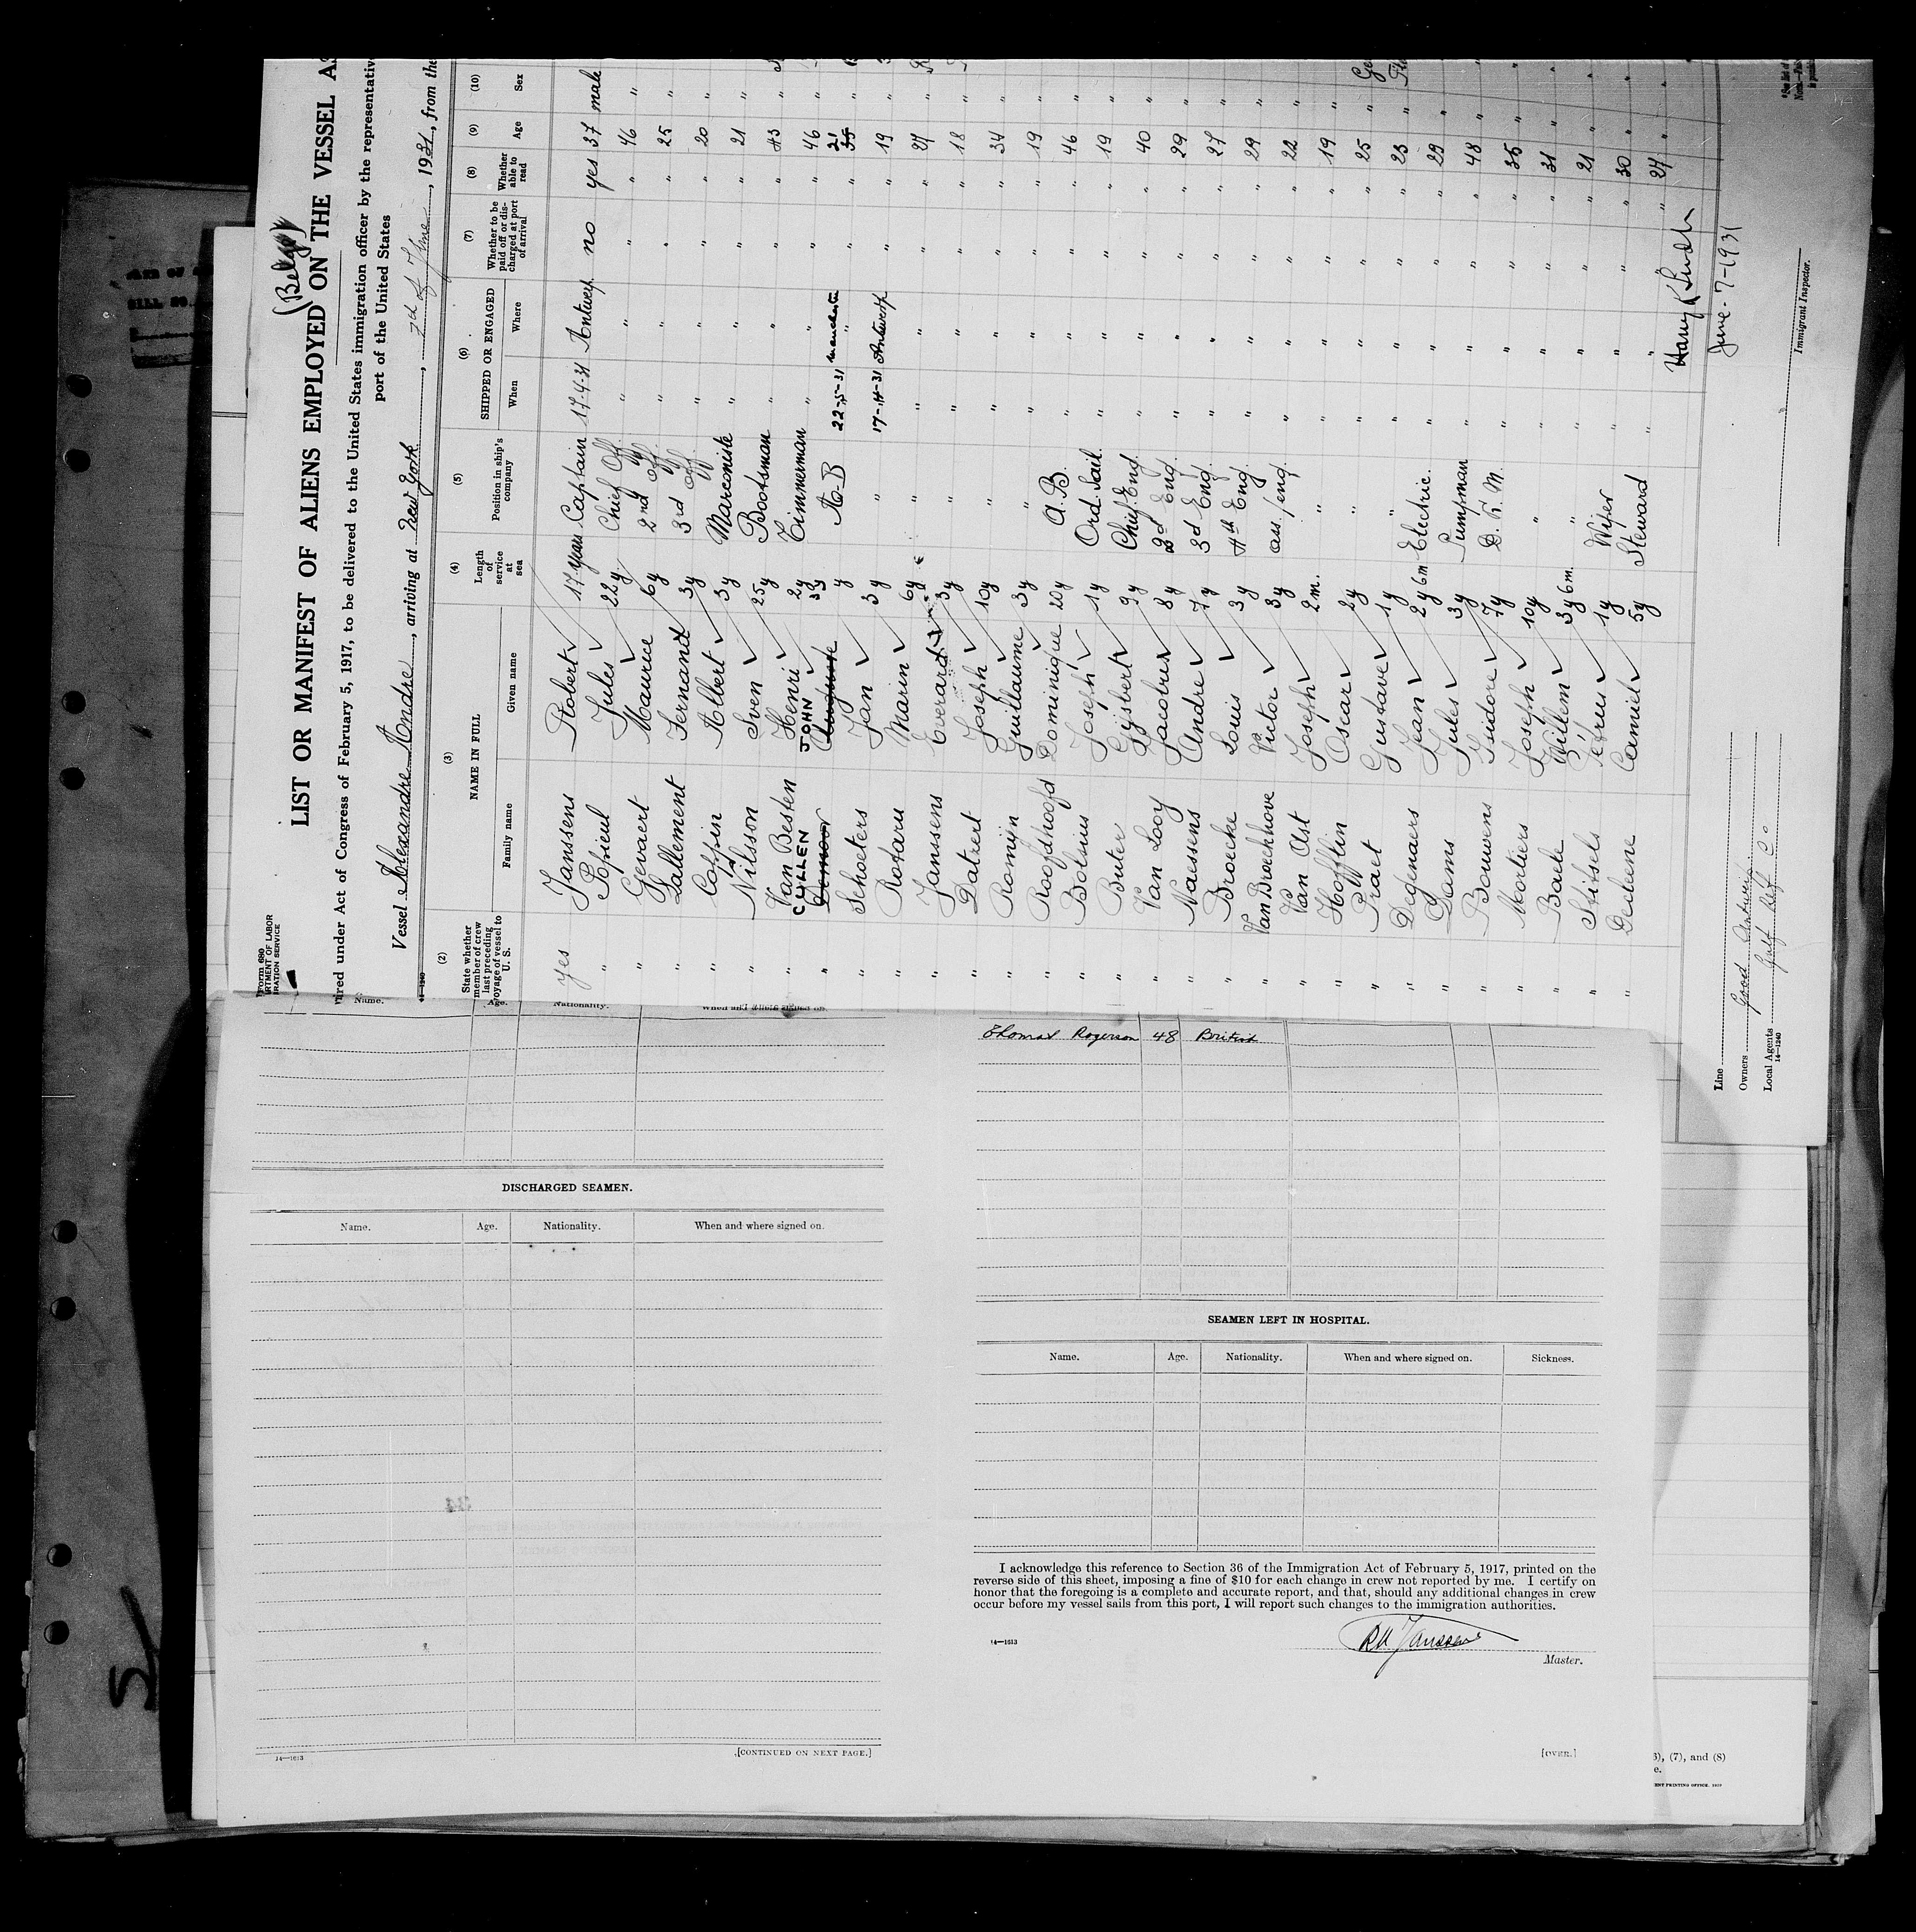 Form 680
LIST OR MANIFEST OF ALIENS EMPLOYED ON THE VESSEL AS
(Belge)
ired under Act of Congress of February 5, 1917, to be delivered to the United States immigration officer by the representativ
port of the United States
Vessel Alexandre Andre, arriving at New York, 7th of June, 1931, from the
14—1240
(2) (3) (4) (5) (6) (7) (8) (9) (10)
State whether member of crew last preceding voyage of vessel to U. S. NAME IN FULL Length of service at sea Position in ship's company SHIPPED OR ENGAGED Whether to be paid off or discharged at port of arrival Whether able to read Age Sex
Family name Given name When Where
yes Janssens Robert 17 years Captain 17-4-31 Antwerp no yes 37 male
" Popieul Jules 22 y Chief Off. " " " " 46 "
" Gevaert Maurice 6 y 2nd Off. " " " " 25 "
" Lallement Fernand 3 y 3rd Off. " " " " 20 "
" Coppin Albert 3 y Marconiste " " " " 21 "
" Nilsson Sven 25 y Bootsman " " " " 43 "
" Van Besten Henri 2 y Timmerman " " " " 46 "
CULLEN JOHN 22-5-31 Manchester 21
" Demoor Auguste y A-B " " " 35 "
" Schoeters Jan 3 y " 17-4-31 Antwerp " " 19 "
" Rotaru Marin 6 y " " " " " 27 "
" Janssens Everard 3 y " " " " " 18 "
" Datzert Joseph 10 y " " " " " 34 "
" Romijn Guillaume 3 y " " " " " 19 "
" Roofdhoofd Dominique 20 y A.B. " " " " 46 "
" Bolsius Joseph 1 y Ord. Sail. " " " " 19 "
" Buter Gijsbert 9 y Chief Eng. " " " " 40 "
" Van Looy Jacobus 8 y 2d Eng. " " " " 29 "
" Naessens Andre 7 y 3d Eng. " " " " 27 "
" Broecke Louis 3 y 4th Eng. " " " " 29 "
" Van Broeckhove Victor 3 y ass/eng. " " " " 22 "
" Van Alst Joseph 2 m. " " " " " 19 "
" Hofflin Oscar 2 y " " " " " 25 "
" Praet Gustave 1 y " " " " " 23 "
" Degenaers Jean 2 y 6 m Electric. " " " " 29 "
" Dams Jules 3 y Pumpman " " " " 48 "
" Bouwens Isidore 7 y D. K. M. " " " " 35 "
" Mortiers Joseph 10 y " " " " " 31 "
" Baele Willem 3 y 6 m. " " " " " 21 "
" Stitsels Petrus 1 y Wiper " " " " 30 "
" Gedeene Camiel 5 y Steward " " " " 27 "
June - 7-1931
Immigrant Inspector.
Line
Owners
Local Agents Gulf Ref Co
14—1240
Name. Age. Nationality. When and where signed on.
DISCHARGED SEAMEN.
Name. Age. Nationality. When and where signed on.
14—1613
[CONTINUED ON NEXT PAGE.]
Thomas Rogerson 48 British
SEAMEN LEFT IN HOSPITAL.
Name. Age. Nationality. When and where signed on. Sickness.
I acknowledge this reference to Section 36 of the Immigration Act of February 5, 1917, printed on the
reverse side of this sheet, imposing a fine of $10 for each change in crew not reported by me. I certify on
honor that the foregoing is a complete and accurate report, and that, should any additional changes in crew
occur before my vessel sails from this port, I will report such changes to the immigration authorities.
14—1613
RM Janssens
Master.
[OVER.]
(7), and (8)
5